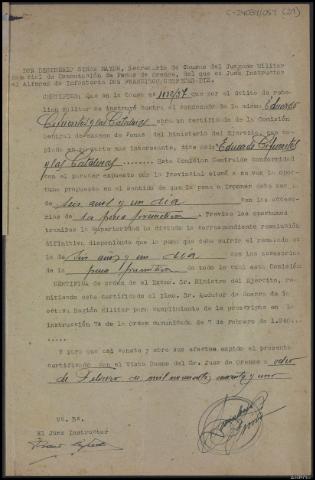 DON DESIDERIO GIRON MAYOR, Secretario de Causas del Juzgado Militar
de Conmutación de Penas de Orense, del que es Juez Instructor
el Alferez de Infantería DON FRANCISCO
CERTIFICO; Que en la Causa nº 1132/37 que por el delito de rebe-
lion militar se instruyó contra el condenado de la misma Eduardo
Cifuentes y las Catalinas obra un certificado de la Comisión
Central de Examen de Penas del Ministerio del Ejército, que co-
piado en su parte mas interesante, dice así: Eduardo Cifuentes
y las Catalinas Esta Comisión Central de conformidad
con el parecer expuesto por la Provincial elevó a su vez la opor-
tuna propuesta en el sentido de que la pena a imponer debe ser
de Seis años y un día con las acceso-
rias de la pena primitiva Previos los oportunos
tramites la Superioridad ha dictado la correspondiente resolución
definitiva disponiendo que la pena que debe sufrir el rematado es
la de Seis años y un día con las accesorias
de la pena primitiva de todo lo cual esta Comisión
CERTIFICA de orden del Excmo. Sr. Ministro del Ejército, re-
mitiendo este certificado al Ilmo. Sr. Auditor de Guerra de la
octava Región Militar para cumplimiento de lo prescrito en la
instrucción 7ª de la Orden comunicada de 7 de Febrero de 1.940
Y para que así conste y obre sus efectos expido el presente
certificado con el Visto Bueno del Sr. Juez de Orense a ocho
de Febrero de mil novecientos cuarenta y uno
Vº. Bº.
El Juez Instructor